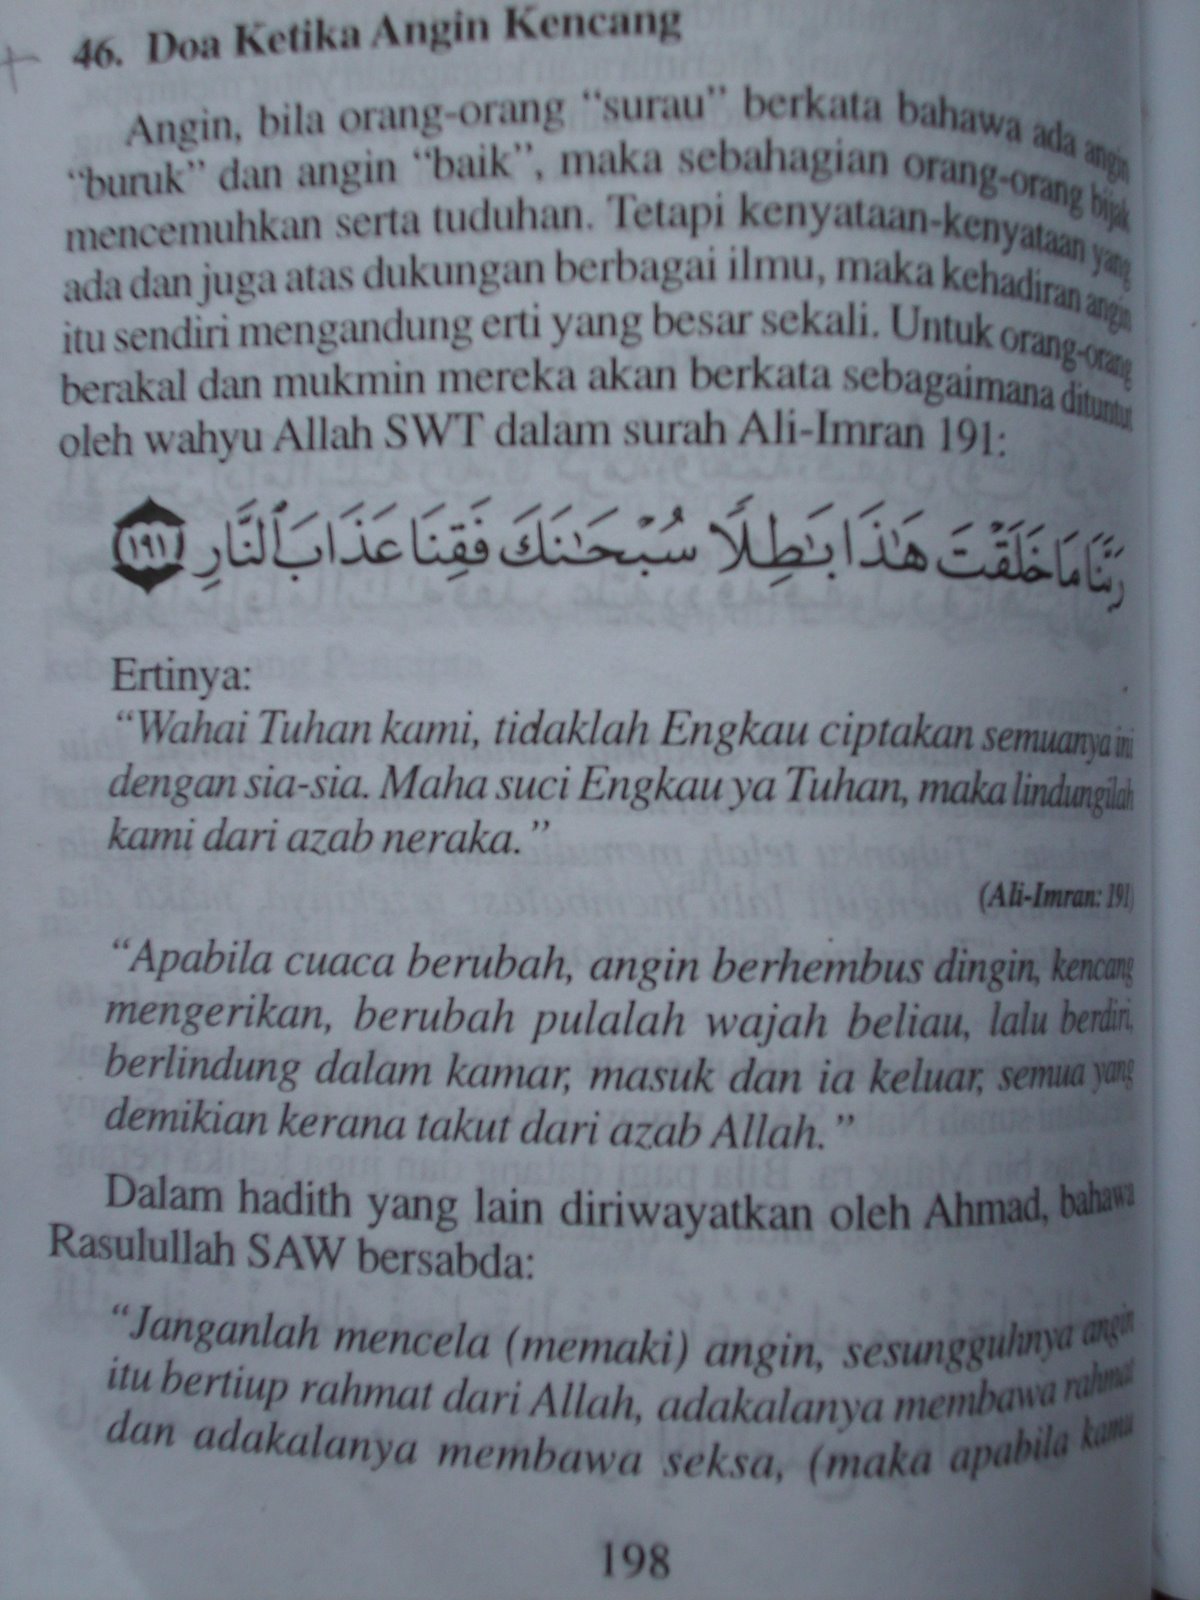 46. Doa Ketika Angin Kencang
Angin, bila orang-orang “surau” berkata bahawa ada angin
“buruk” dan angin “baik”, maka sebahagian orang-orang bijak
mencemuhkan serta tuduhan. Tetapi kenyataan-kenyataan yang
ada dan juga atas dukungan berbagai ilmu, maka kehadiran angin
itu sendiri mengandung erti yang besar sekali. Untuk orang-orang
berakal dan mukmin mereka akan berkata sebagaimana dituntut
oleh wahyu Allah SWT dalam surah Ali-Imran 191:
رَبَّنَا مَا خَلَقْتَ هَٰذَا بَٰطِلًا سُبْحَٰنَكَ فَقِنَا عَذَابَ ٱلنَّارِ ١٩١
Ertinya:
“Wahai Tuhan kami, tidaklah Engkau ciptakan semuanya ini
dengan sia-sia. Maha suci Engkau ya Tuhan, maka lindungilah
kami dari azab neraka.”
(Ali-Imran: 191)
“Apabila cuaca berubah, angin berhembus dingin, kencang
mengerikan, berubah pulalah wajah beliau, lalu berdiri,
berlindung dalam kamar, masuk dan ia keluar, semua yang
demikian kerana takut dari azab Allah.”
Dalam hadith yang lain diriwayatkan oleh Ahmad, bahawa
Rasulullah SAW bersabda:
“Janganlah mencela (memaki) angin, sesungguhnya angin
itu bertiup rahmat dari Allah, adakalanya membawa rahmat
dan adakalanya membawa seksa, (maka apabila kamu
198